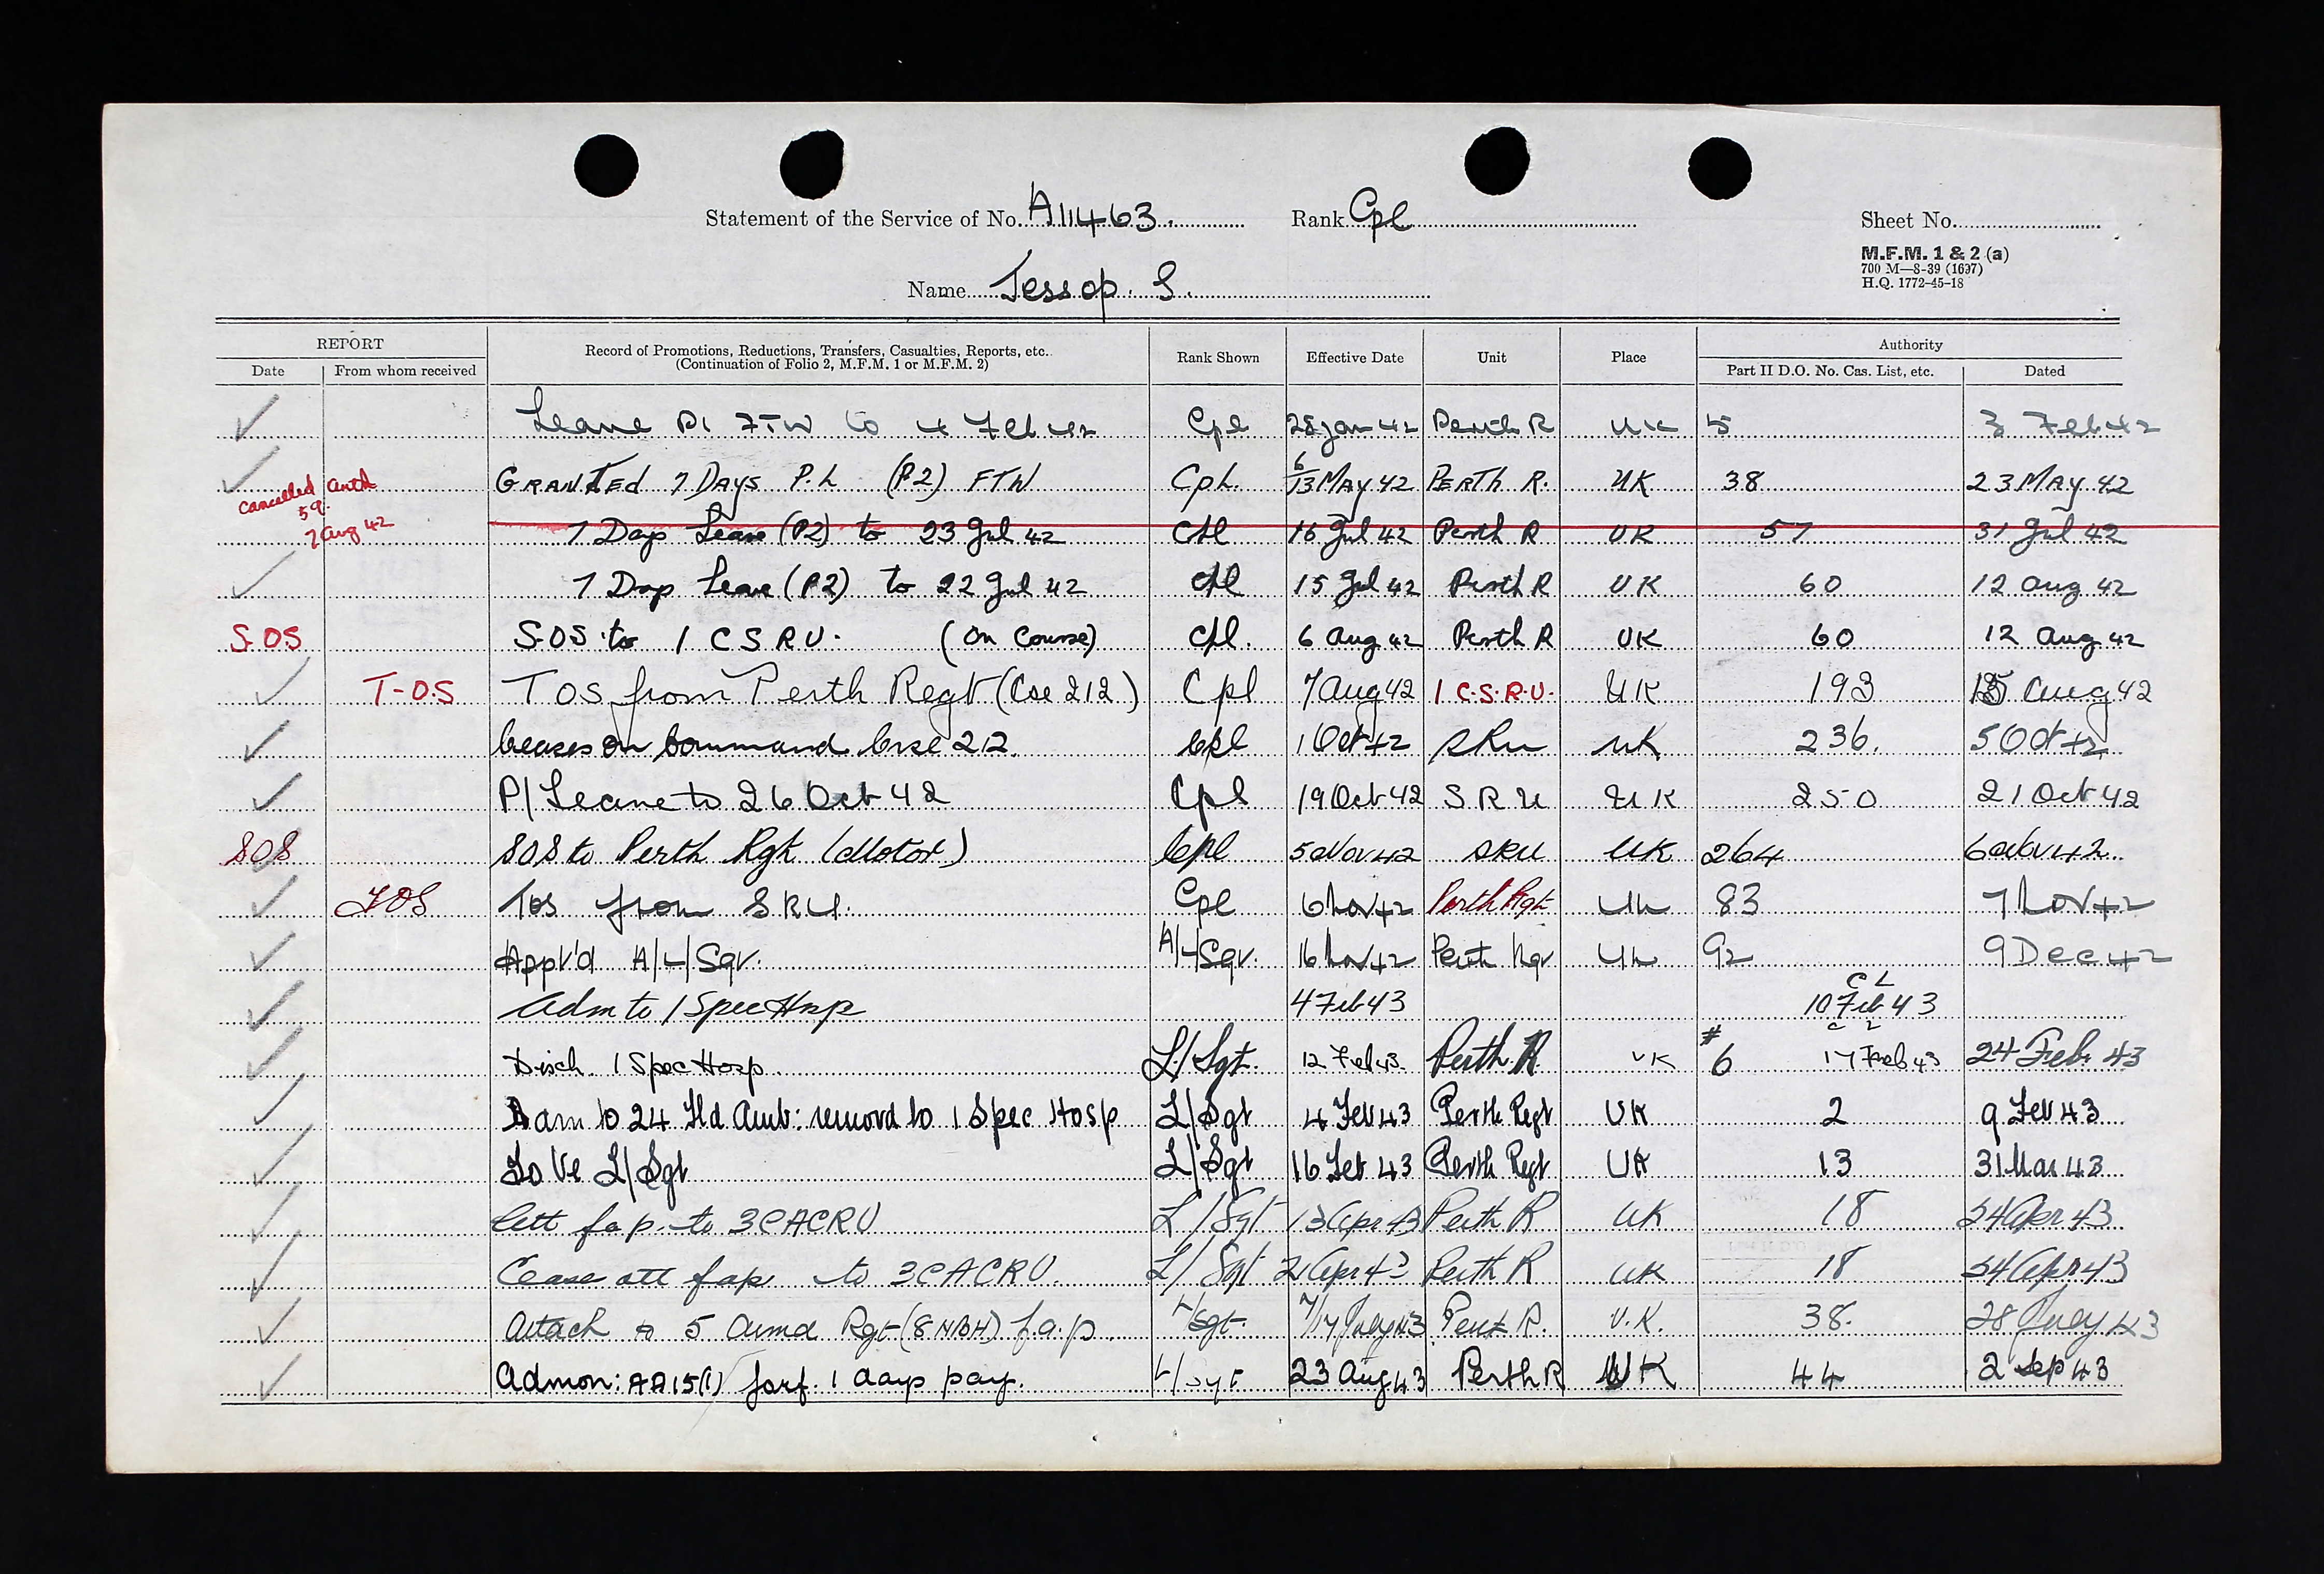 Statement of the Service of No. A11463. Rank Cpl Sheet No.
M.F.M. 1 & 2 (a)
700 M—8-39 (1697)
H.Q. 1772-45-18
Name Jessop. S.
REPORT
Date From whom received
Record of Promotions, Reductions, Transfers, Casualties, Reports, etc.
(Continuation of Folio 2, M.F.M. 1 or M.F.M. 2)
Rank Shown Effective Date Unit Place
Authority
Part II D.O. No. Cas. List, etc. Dated
Leave P1 FTW to 4 Feb 42 Cpl 28 Jan 42 Perth R UK 5 3 Feb 42
GRANTED 7 DAYS P.L (P.2) FTW CpL. 6/13 MAY 42 PERTH R. UK 38 23 MAY 42
Cancelled auth
59.
7 Aug 42
7 Days Leave (P2) to 23 Jul 42 Cpl 16 Jul 42 Perth R UK 57 31 Jul 42
7 Days Leave (P2) to 22 Jul 42 Cpl 15 Jul 42 Perth R UK 60 12 Aug 42
S.O.S SOS to 1 C S R U. (On Course) Cpl. 6 Aug 42 Perth R UK 60 12 Aug 42
T-O.S TOS from Perth Regt (Cse 212) Cpl 7 Aug 42 1 C.S.R.U. UK 193 Aug 42
Ceases on Command Crse 212. Cpl 1 Oct 42 SRU UK 236. 5 Oct 42
P/Leave to 26 Oct 42 Cpl 19 Oct 42 S R U UK 250 21 Oct 42
SOS SOS to Perth Rgt (Motor) Cpl 5 Nov 42 SRU UK 264 6 Nov 42
TOS Tos from SRU. Cpl 6 Nov 42 Perth Rgt UK 83 7 Nov 42
Appt'd A/L/Sgt. A/L/Sgt. 16 Nov 42 Perth Rgt UK 92 9 Dec 42
Adm to 1 Spec Hosp 4 Feb 43 CL 10 Feb 43
Disch. 1 Spec Hosp. L/Sgt. 12 Feb 43 Perth R. UK #6 CL 17 Feb 43 24 Feb. 43
Adm to 24 Fld Amb: removd to 1 Spec Hosp L/Sgt 4 Feb 43 Perth Regt UK 2 9 Feb 43
To be L/Sgt L/Sgt 16 Feb 43 Perth Regt UK 13 31 Mar 43
Att f a p. to 3CACRU L/Sgt 13 Apr 43 Perth R UK 18 24 Apr 43
Cease att f a p to 3CACRU. L/Sgt 21 Apr 43 Perth R UK 18 24 Apr 43
Attach to 5 Armd Rgt (8 NBH) f.a.p. L/Sgt. 7/17 July 43 Perth R. U.K. 38. 28 July 43
Admon: AA15(1) forf. 1 days pay. L/Sgt 23 Aug 43 Perth R UK 44 2 Sep 43